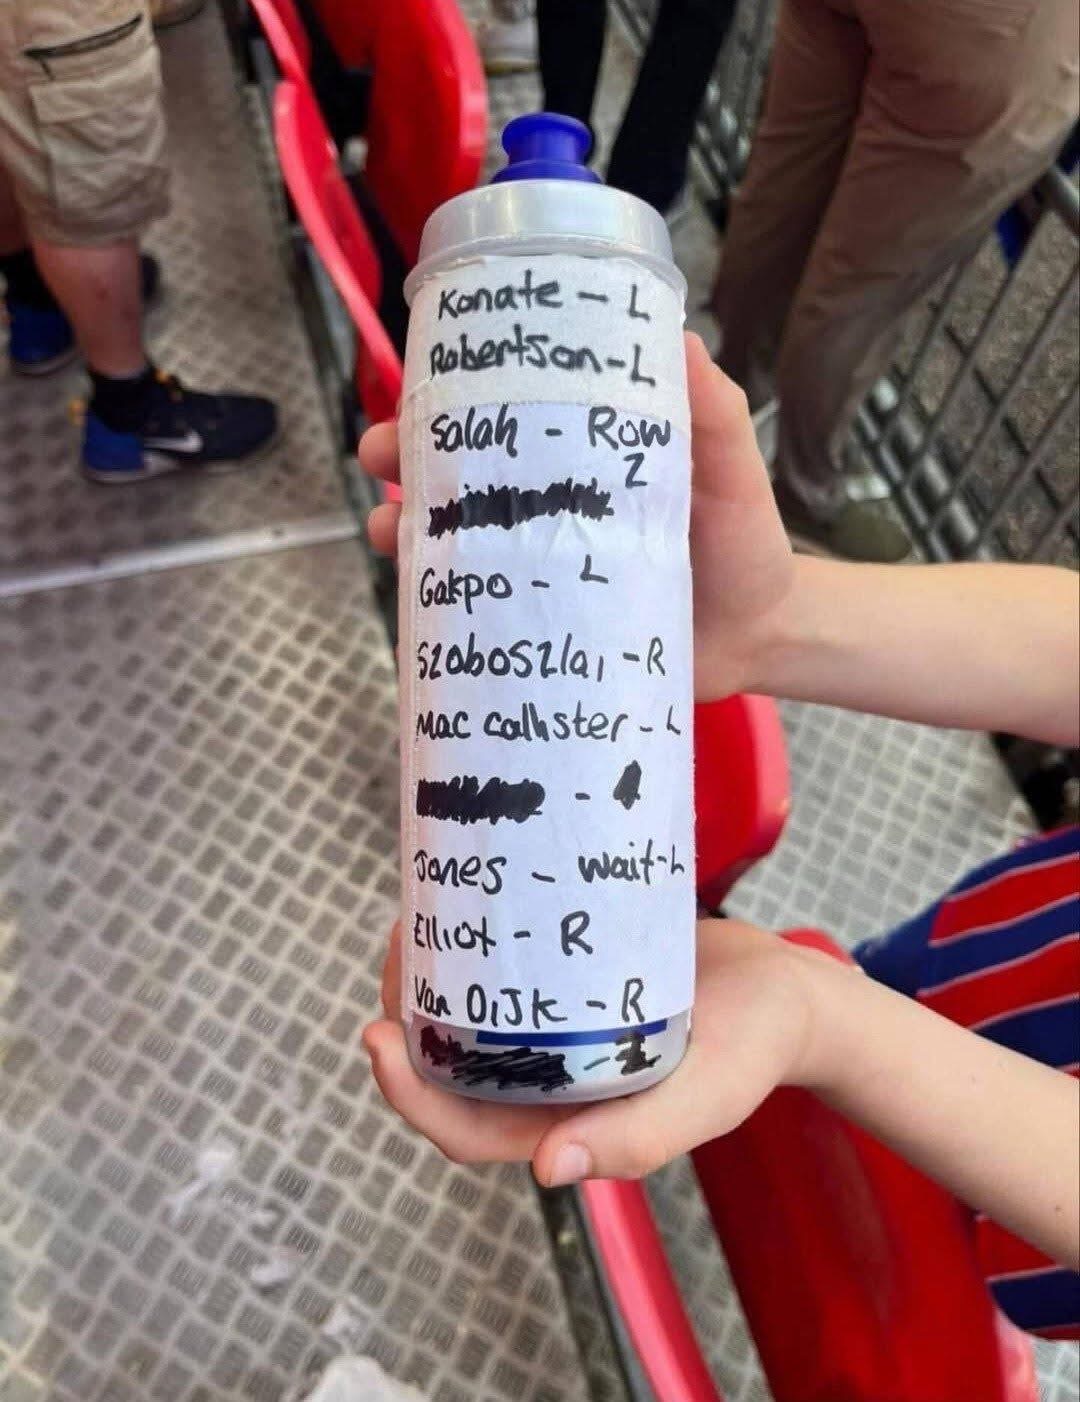 Konate - L
Robertson - L
Salah - Row
Z
Gakpo - L
Szoboszlai - R
Mac callister - L
Jones - wait - L
Elliot - R
Van DiJk - R